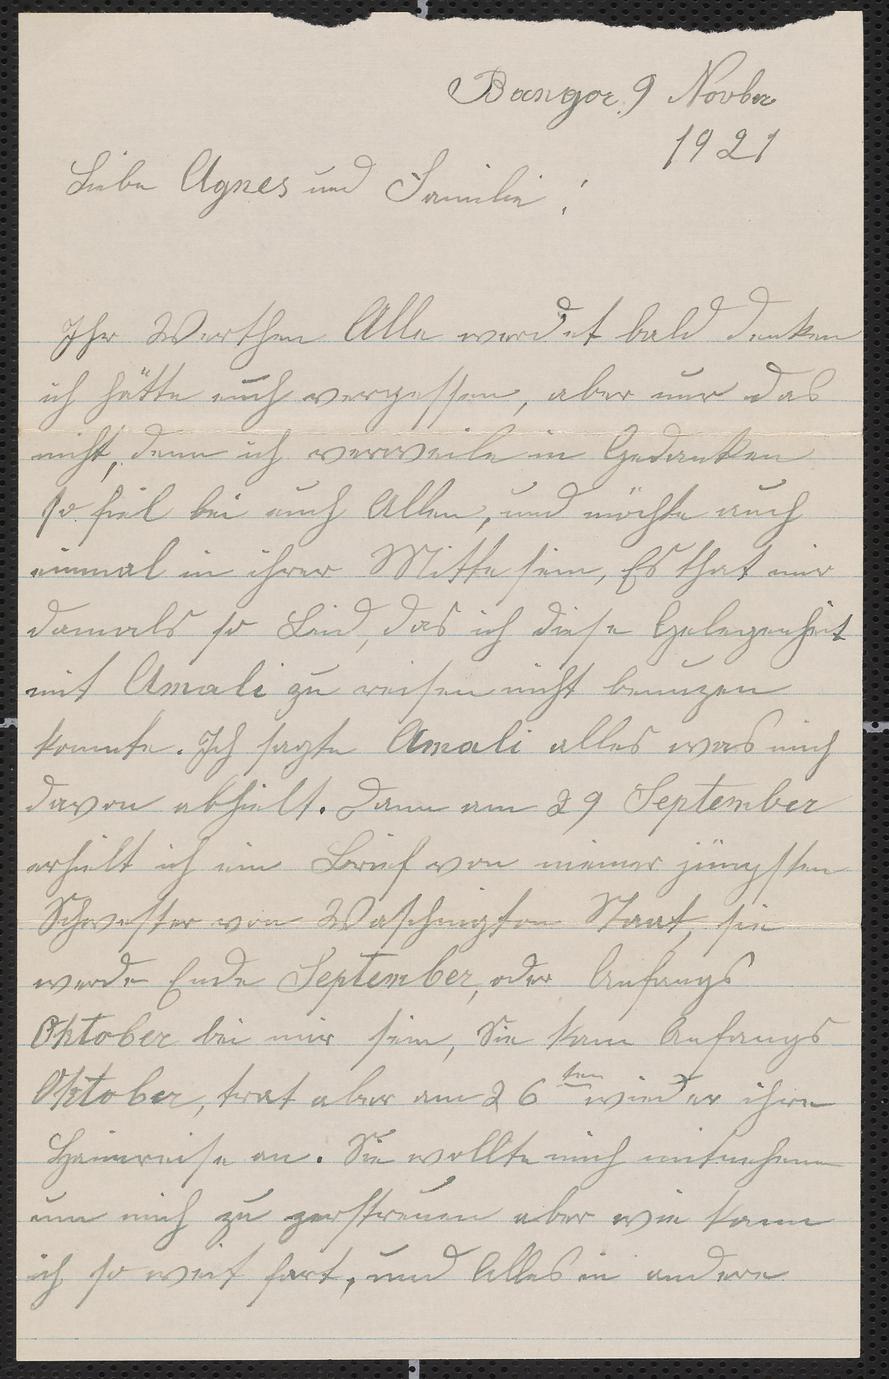 Bangor 9 Novber
1921
Liebe Agnes und Familie!
Ihr Werthen Alle werdet bald denken
ich hätte euch vergessen, aber nur das
nicht, denn ich verweile in Gedanken
so fiel bei euch Allen, und möchte auch
einmal in ihrer Mitte sein, Es that mir
damals so Leid, das ich diese Gelegenheit
mit Amali zu reisen nicht benuzen
konnte. Ich sagte Amali alles was mich
davon abhielt. Dann am 29 September
erhielt ich ein Brief von meiner jüngsten
Schwester von Waschington Staat, sie
werde Ende September, oder Anfangs
Oktober bei mir sein, Sie kam Anfangs
Oktober, trat aber am 26ten wieder ihre
Heimreise an. Sie wollte mich mitnehmen
um mich zu zerstreuen aber wie kann
ich so weit fort, und Alles in andere